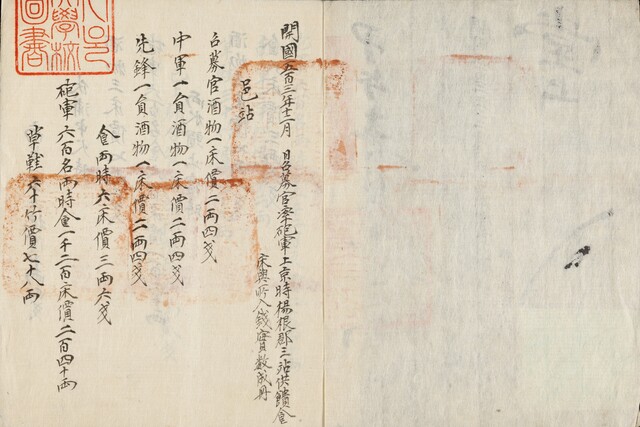 開國五百三年十二月 日召募官率砲軍上京時楊根郡三站供饋食
床與所入錢實數成冊
邑站
召募官酒物一床價二兩四戔
中軍一負酒物一床價二兩四戔
先鋒一負酒物一床價二兩四戔
食兩時六床價三兩六戔
砲軍六百名兩時食一千二百床價二百四十兩
草 六十 價七十八兩
學校
圖書